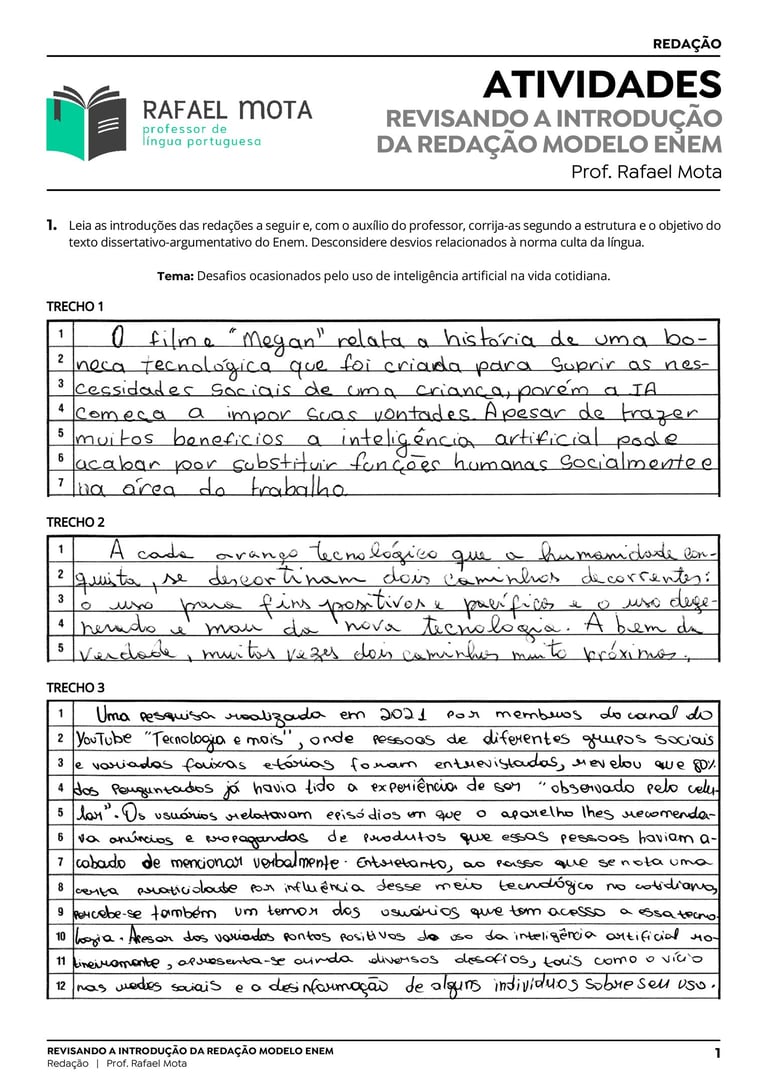 REDAÇÃO
RAFAEL MOTA
professor de
língua portuguesa
ATIVIDADES
REVISANDO A INTRODUÇÃO
DA REDAÇÃO MODELO ENEM
Prof. Rafael Mota
1. Leia as introduções das redações a seguir e, com o auxílio do professor, corrija-as segundo a estrutura e o objetivo do
texto dissertativo-argumentativo do Enem. Desconsidere desvios relacionados à norma culta da língua.
Tema: Desafios ocasionados pelo uso de inteligência artificial na vida cotidiana.
TRECHO 1
1 O filme "Megan" relata a história de uma bo-
2 neca tecnológica que foi criada para suprir as nes-
3 cessidades sociais de uma criança, porém a IA
4 começa a impor suas vontades. Apesar de trazer
5 muitos beneficios a inteligência artificial pode
6 acabar por substituir funções humanas socialmente e
7 na área do trabalho.
TRECHO 2
1 A cada avanço tecnológico que a humanidade con-
2 quista, se descortinam dois caminhos decorrentes:
3 o uso para fins positivos e pacíficos e o uso dege-
4 nerado e mau da nova tecnologia. A bem da
5 verdade, muitas vezes dois caminhos muito próximos.
TRECHO 3
1 Uma pesquisa realizada em 2021 por membros do canal do
2 YouTube "Tecnologia e mais", onde pessoas de diferentes grupos sociais
3 e variadas faixas etárias foram entrevistadas, revelou que 80%
4 dos perguntados já havia tido a experiência de ser "observado pelo celu-
5 lar". Os usuários relatavam episódios em que o aparelho lhes recomenda-
6 va anúncios e propagandas de produtos que essas pessoas haviam a-
7 cabado de mencionar verbalmente. Entretanto, ao passo que se nota uma
8 certa praticidade por influência desse meio tecnológico no cotidiano,
9 percebe-se também um temor dos usuários que tem acesso a essa tecno
10 logia. Apesar dos variados pontos positivos do uso da inteligência artificial ro-
11 tineiramente, apresenta-se ainda diversos desafios, tais como o vício
12 nas redes sociais e a desinformação de alguns indivíduos sobre seu uso.
REVISANDO A INTRODUÇÃO DA REDAÇÃO MODELO ENEM
Redação | Prof. Rafael Mota
1